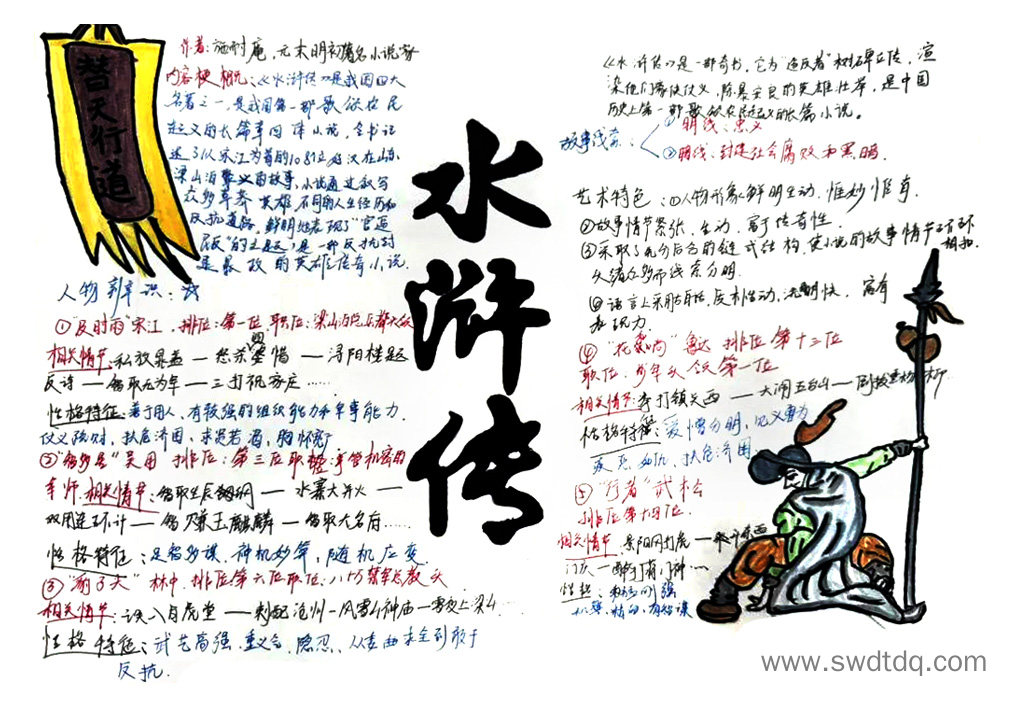 替天行道
作者:施耐庵,元末明初著名小说家
内容梗概:《水浒传》是我国四大
名著之一,是我国第一部歌颂农民
起义的长篇章回体小说,全书记
述了以宋江为首的108位好汉在山东
梁山泊聚义的故事,小说通过叙写
众多草莽英雄不同的人生经历和
反抗道路,鲜明地表现了"官逼
民反"的主题,是一部反抗封
建暴政的英雄传奇小说.
人物辨识:
①"及时雨"宋江 排位:第一位 职位:梁山泊总兵都头领
相关情节:私放晁盖—怒杀婆惜—浔阳楼题
反诗—智取无为军—三打祝家庄……
性格特征:善于用人,有较强的组织能力和军事能力.
仗义疏财,扶危济困,求贤若渴,胸怀
②"智多星"吴用 排位:第三位 职位:掌管机密的
军师.相关情节:智取生辰纲—水寨大并火—
双用连环计—智赚玉麒麟—智取大名府……
性格特征:足智多谋,神机妙算,随机应变
③"豹子头"林冲 排位:第六位 职位:八十万禁军总教头
相关情节:误入白虎堂—刺配沧州—风雪山神庙—雪夜上梁山
性格特征:武艺高强.重义气、隐忍、从委曲求全到敢于
反抗.
水浒传
《水浒传》是一部奇书,它为"造反者"树碑立传,渲
染他们素侠仗义,除暴安良的英雄壮举,是中国
历史上第一部歌颂农民起义的长篇小说。
故事线索:
①明线:忠义
②暗线:封建社会腐败和黑暗.
艺术特色:①人物形象鲜明生动,惟妙惟肖.
②故事情节紧张,生动,富于传奇性.
③采取了先分后合的链式结构,使小说的故事情节环环相扣.
头绪众多而线索分明.
④语言上采用白话,反朴生动,洗明快,富有
表现力.
④"花和尚"鲁达 排位 第十三位
职位:步军头领第一位
相关情节:拳打镇关西—大闹五台山—倒拔垂杨柳
性格特征:爱憎分明,见义勇为
疾恶如仇、扶危济困
⑤"行者"武松
排位第十四位.
相关情节:景阳冈打虎—斗杀西
门庆—醉打蒋门神…
www.swdtdq.com